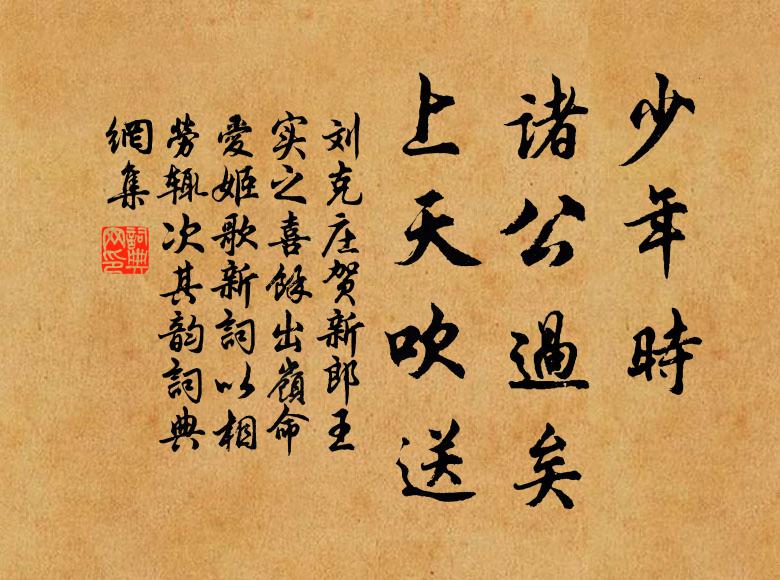 少年時
諸公過矣
上天吹送
刘克庄贺新郎王
实之喜餘出嶺命
愛姬歌新詞以相
勞辄次其韵詞典
網集
詞典
网印